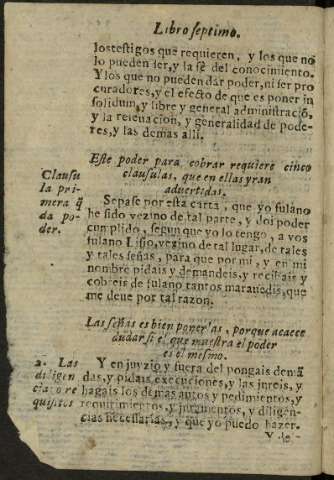 Libro septimo.
los testigos que requieren, y los que no
lo pueden ser, y la fè del conocimiento.
Y los que no pueden dar poder, ni ser pro
curadores, y el efecto de que es poner in
solidum, y libre y general administraciõ,
y la releuacion, y generalidad de pode-
res, y las demas alli.
Este poder para cobrar requiere cinco
clausulas, que en ellas yran
aduertidas.
Clausu
la pri-
mera q̃
da po-
der.
Sepase por esta carta, que yo fulano
he sido vezino de tal parte, y doi poder
cumplido, segun que yo lo tengo, a vos
fulano Lisio, vezino de tal lugar, de tales
y tales señas, para que por mi, y en mi
nombre pidais y demandeis, y recibais y
cobreis de fulano tantos marauedis, que
me deue por tal razon.
Las señas es bien ponerlas, porque acaece
dudar si el que muestra el poder
es el mesmo.
2. Las
diligen
cias re
quisitos
Y en juyzio y fuera del pongais demã
das, y pidais execuciones, y las jureis, y
hagais los demas autos y pedimientos, y
requirimientos, y juramentos, y diligen-
cias necessarias, y que yo puedo hazer.